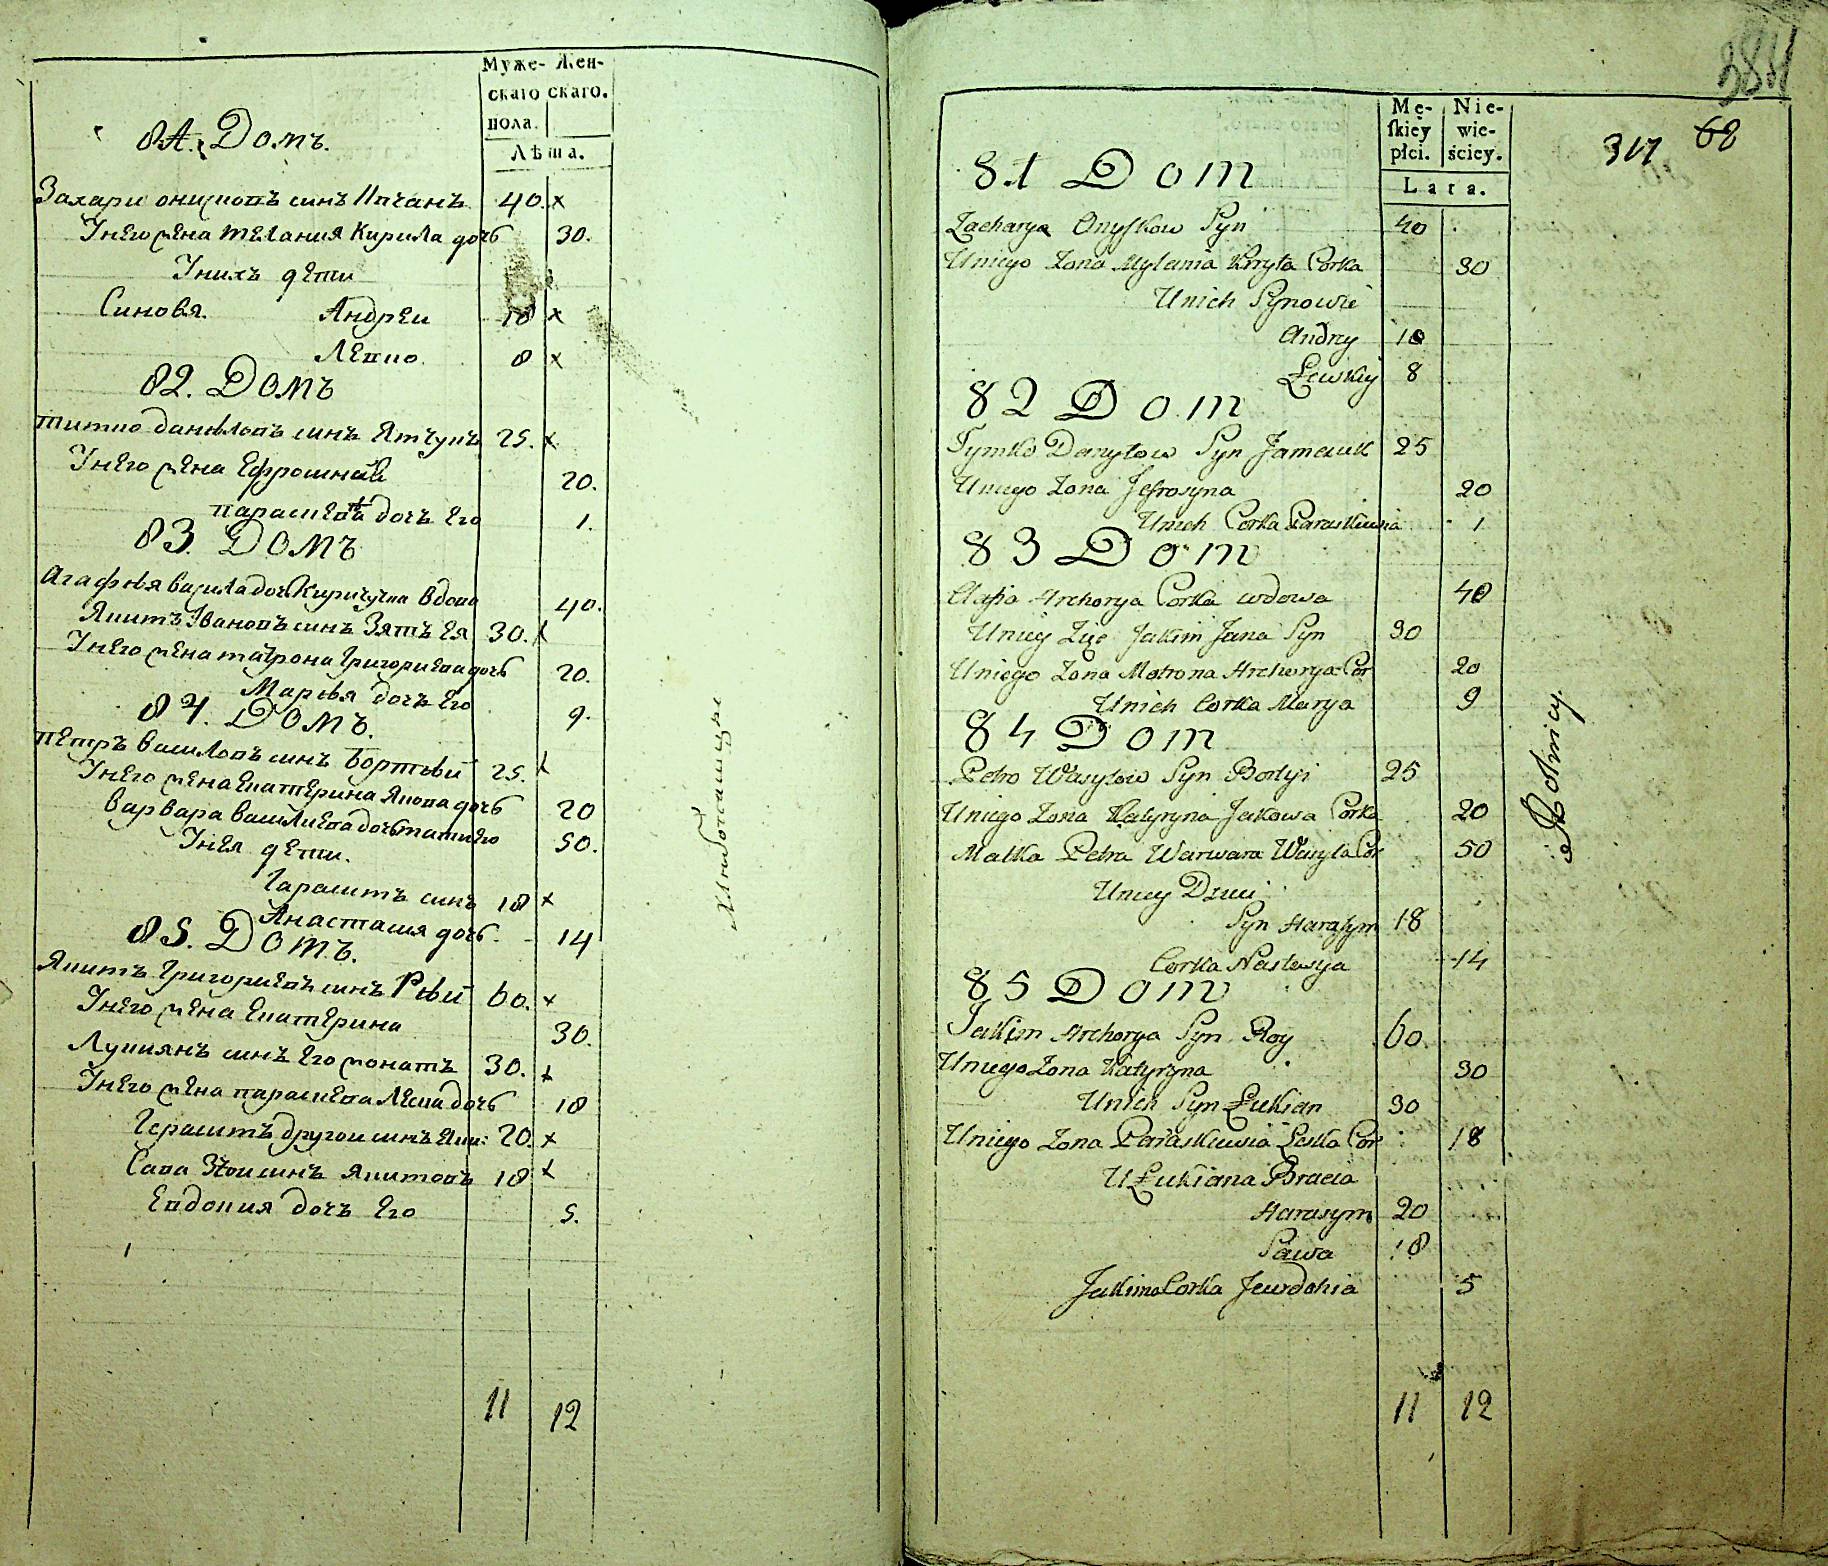 Муже- Жен-
скаго скаго.
пола.
Лѣта.
81. Домъ.
Захари онисковъ синъ 40. x
Унего жена мелания Кирила дочь 30.
Унихъ дети
Синовя. Андреи 18 x
Левко 8 x
82. Домъ
тимко даниловъ синъ 25. x
Унего жена Ефросиния 20.
параскева дочъ Его 1.
83. Домъ
Агафия дочъ вдова 40.
Якимъ Ивановъ синъ Зятъ Ея 30. x
Унего жена матрона Григориева дочь 20.
Мария дочъ Его 9.
84. Домъ.
петръ василовъ синъ бортный 25. x
Унего жена Екатерина Якова дочь 20
варвара василиева дочь мати его 50.
Унея дети.
Гарасимъ синъ 18 x
Анастасия дочь 14
85. Домъ.
Якимъ Григориевъ синъ Рый 60. x
Унего жена Екатерина 30.
Лукиянъ синъ Его жонатъ 30. x
Унего жена параскева Леска дочь 18
Герасимъ другои синъ Яки: 20. x
Сава 3ти синъ Якимовъ 18 x
Евдокия дочъ Его 5.
11 12
Хлибопашцы
384
317 68
Mę- Nie-
ſkiey wie-
płci. ścicy.
Lata.
81 Dom
Zacharya Onyſkow Syn 40
Uniego Zona Mylania Kiryła Corka 30
Unich Synowie
Andry 18
Lewkiy 8
82 Dom
Tymko Danyłow Syn 25
Uniego Zona Jefrosyna 20
Unich Corka Paraskiewia 1
83 Dom
Hrehorya Corka wdowa 40
Uniey Zięć Jakim Jana Syn 30
Uniego Zona Motrona Hrehorya Cor 20
Unich Corka Marya 9
84 Dom
Petro Wasylow Syn Bortyi 25
Uniego Zona Katyryna Jakowa Corka 20
Matka Petra Warwara Wasyla Cor 50
Uniey Dzieci
Syn Harasym 18
Corka Nastasya 14
85 Dom
Jakim Hrehorya Syn Roy 60
Uniego Zona Katyryna 30
Unich Syn Łukian 30
Uniego Zona Paraskiewia Leska Cor 18
U Łukiana Bracia
Harasym 20
Sawa 18
Jakima Corka Jewdokia 5
11 12
Rolnicy.